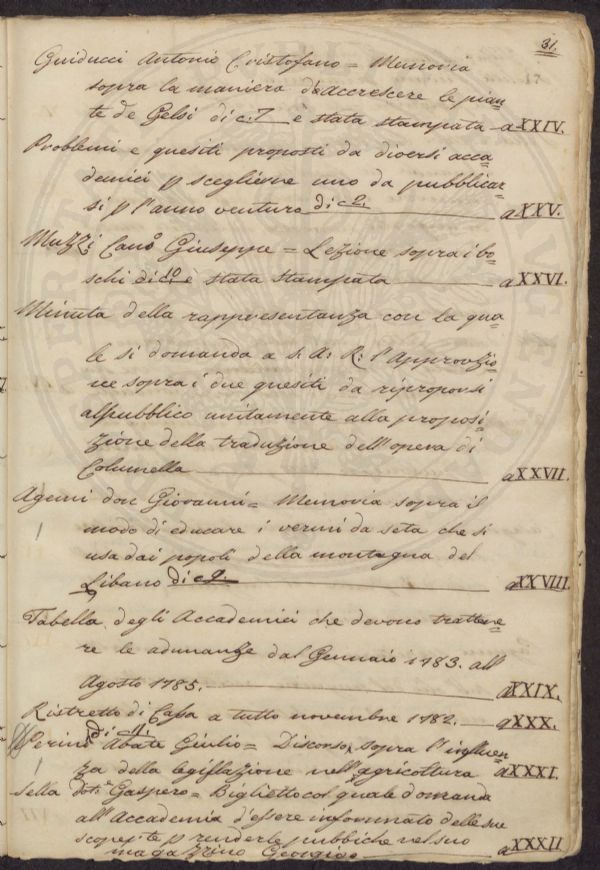 31.
Guiducci Antonio Cristofano = Memoria
sopra la maniera d'accrescere le pian=
te de Gelsi di c. 7 è stata stampata a XXIV.
Problemi e quesiti proposti da diversi acca=
demici p sceglierne uno da pubblicar=
si p l'anno venturo di c 2. a XXV.
Muzzi Cano. Giuseppe = Lezione sopra i bo=
schi di c. 10 è stata stampata a XXVI.
Minuta della rappresentanza con la qua=
le si domanda a S: A: R: l'Approvazio=
ne sopra i due quesiti da riproporsi
al pubblico unitamente alla proposi=
zione della traduzione dell'opera di
Columella a XXVII.
Agemi don Giovanni = Memoria sopra il
modo di educare i vermi da seta che si
usa dai popoli della montagna del
Libano di c 9. a XXVIII.
Tabella degli Accademici che devono trattene=
re le adunanze dal Gennaio 1783. all'
Agosto 1785. a XXIX.
Ristretto di Cassa a tutto novembre 1782. a XXX.
di 11.
Perini Abate Giulio = Discorso sopra l'influen=
za della legislazione nell'agricoltura a XXXI.
Sella Dott. Gaspero = Biglietto col quale domanda
all'Accademia d'essere informato delle sue
scoperte p renderle pubbiche nel suo
magazzino Georgico a XXXII